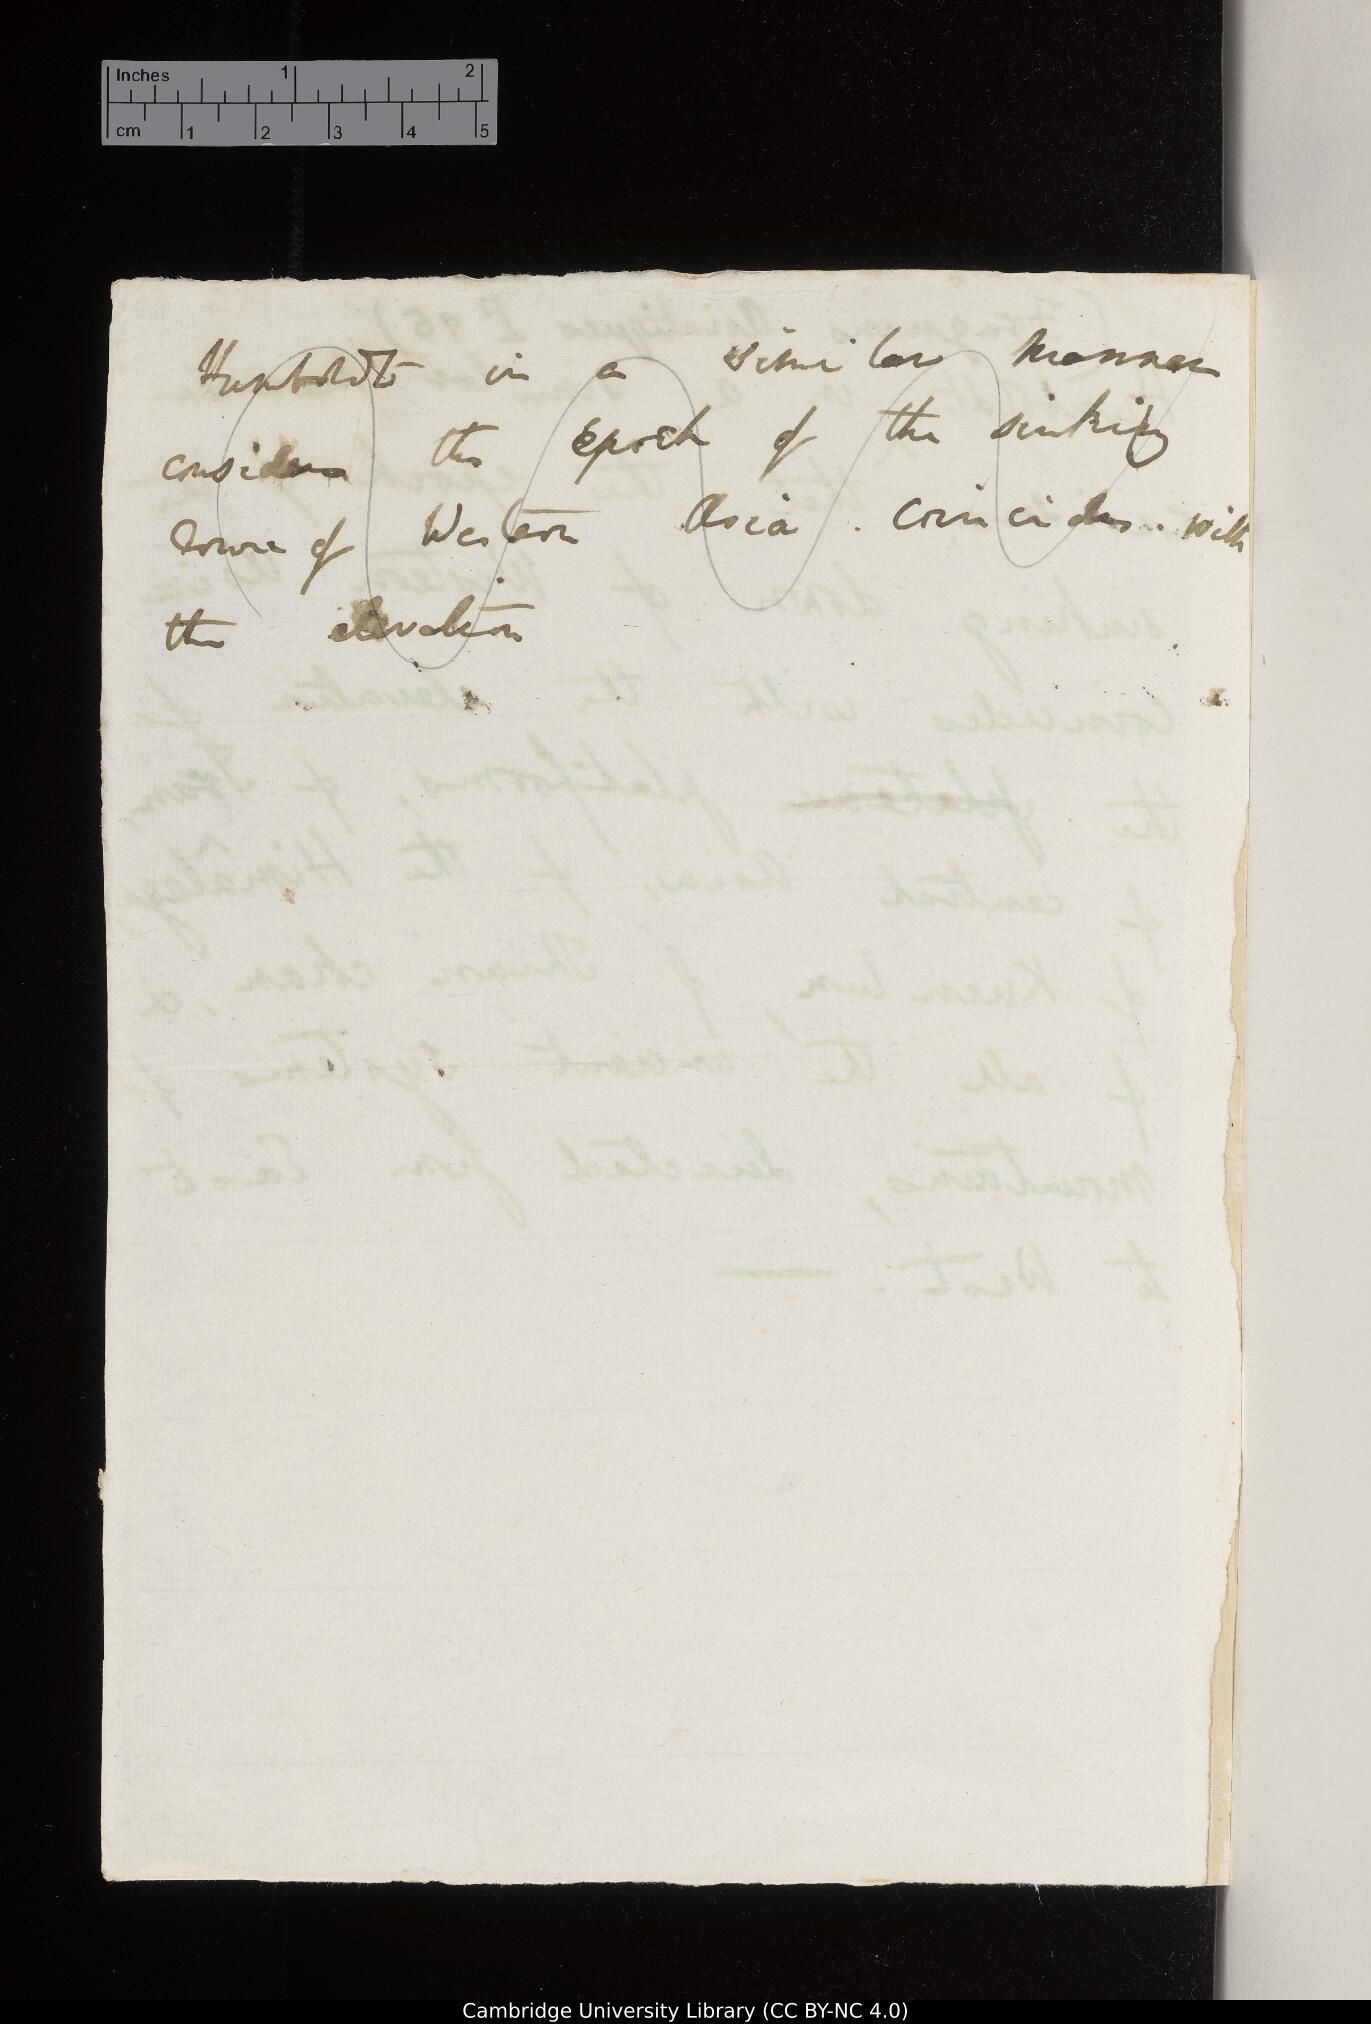 Inches 1 2
cm 1 2 3 4 5
Humboldt in a similar manner
considers the epoch of the sinking
down of Western Asia . coincides . with
the elevation
Cambridge University Library (CC BY-NC 4.0)